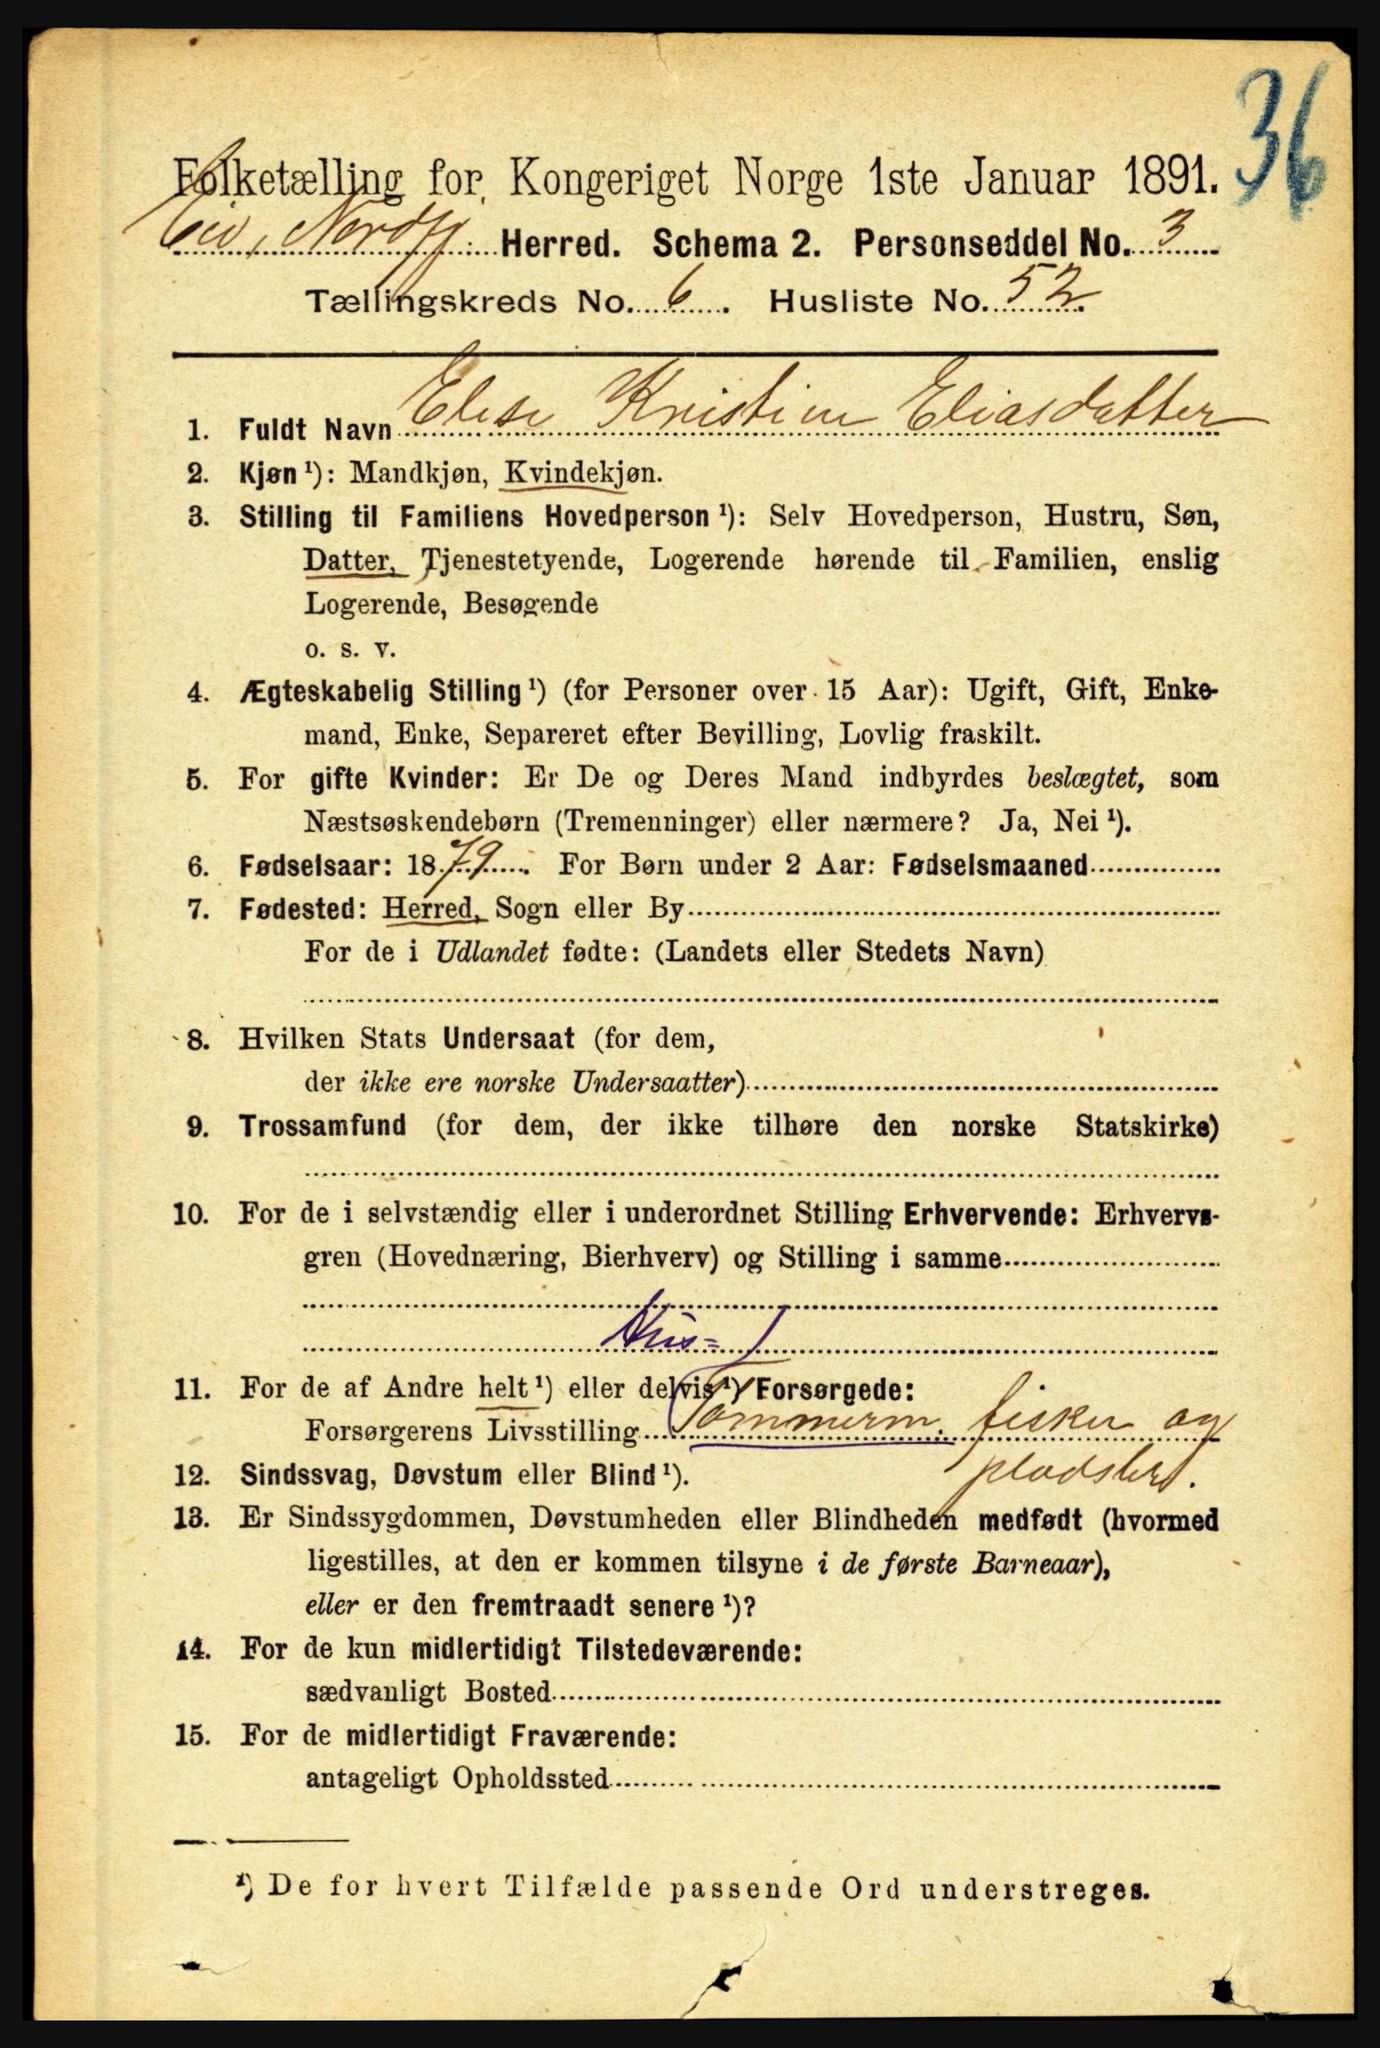 36
Folketælling for Kongeriget Norge 1ste Januar 1891.
Eid, Nordfj. Herred. Schema 2. Personseddel No. 3
Tællingskreds No. 6. Husliste No. 52.
1. Fuldt Navn Elese Kristine Eliasdatter
2. Kjøn¹): Mandkjøn, Kvindekjøn.
3. Stilling til Familiens Hovedperson¹): Selv Hovedperson, Hustru, Søn,
Datter, Tjenestetyende, Logerende hørende til Familien, enslig
Logerende, Besøgende
o. s. v.
4. Ægteskabelig Stilling¹) (for Personer over 15 Aar): Ugift, Gift, Enke-
mand, Enke, Separeret efter Bevilling, Lovlig fraskilt.
5. For gifte Kvinder: Er De og Deres Mand indbyrdes beslægtet, som
Næstsøskendebørn (Tremenninger) eller nærmere? Ja, Nei¹).
6. Fødselsaar: 1879. For Børn under 2 Aar: Fødselsmaaned
7. Fødested: Herred, Sogn eller By
For de i Udlandet fødte: (Landets eller Stedets Navn)
8. Hvilken Stats Undersaat (for dem,
der ikke ere norske Undersaatter)
9. Trossamfund (for dem, der ikke tilhøre den norske Statskirke)
10. For de i selvstændig eller i underordnet Stilling Erhvervende: Erhvervs-
gren (Hovednæring, Bierhverv) og Stilling i samme
Hus=
11. For de af Andre helt¹) eller delvis¹) Forsørgede:
Forsørgerens Livsstilling Tømmerm. fisker og
pladsbr.
12. Sindssvag, Døvstum eller Blind¹).
13. Er Sindssygdommen, Døvstumheden eller Blindheden medfødt (hvormed
ligestilles, at den er kommen tilsyne i de første Barneaar),
eller er den fremtraadt senere¹)?
14. For de kun midlertidigt Tilstedeværende:
sædvanligt Bosted
15. For de midlertidigt Fraværende:
antageligt Opholdssted
¹) De for hvert Tilfælde passende Ord understreges.